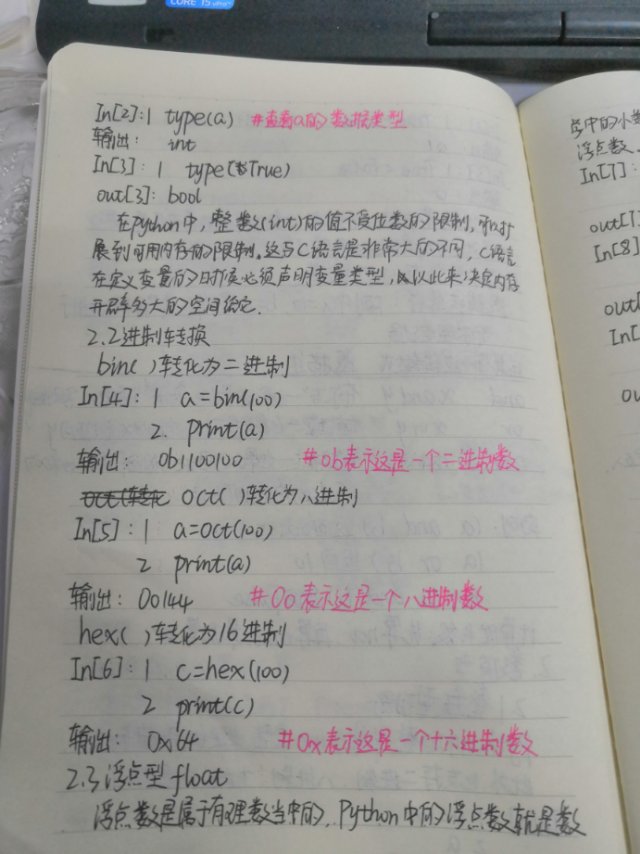 CORE i5
In[2]:1 type(a) #查看a的数据类型
输出: int
In[3]: 1 type(True)
out[3]: bool
在python中,整数(int)的值不受位数的限制,可扩
展到可用内存的限制。这与C语言是非常大的不同,C语言
在定义变量的时候必须声明变量类型,以此来决定内存
开辟多大的空间给它.
2.2进制转换
bin( )转化为二进制
In[4]: 1 a=bin(100)
2. print(a)
输出: 0b1100100 #0b表示这是一个二进制数
oct( )转化为八进制
In[5]: 1 a=oct(100)
2 print(a)
输出: 0o144 #0o表示这是一个八进制数
hex( )转化为16进制
In[6]: 1 c=hex(100)
2 print(c)
输出: 0x64 #0x表示这是一个十六进制数
2.3浮点型float
浮点数是属于有理数当中的, Python中的浮点数就是数
学中的小数
浮点数.
In[7]:
out[7]
In[8]
out
In
ou